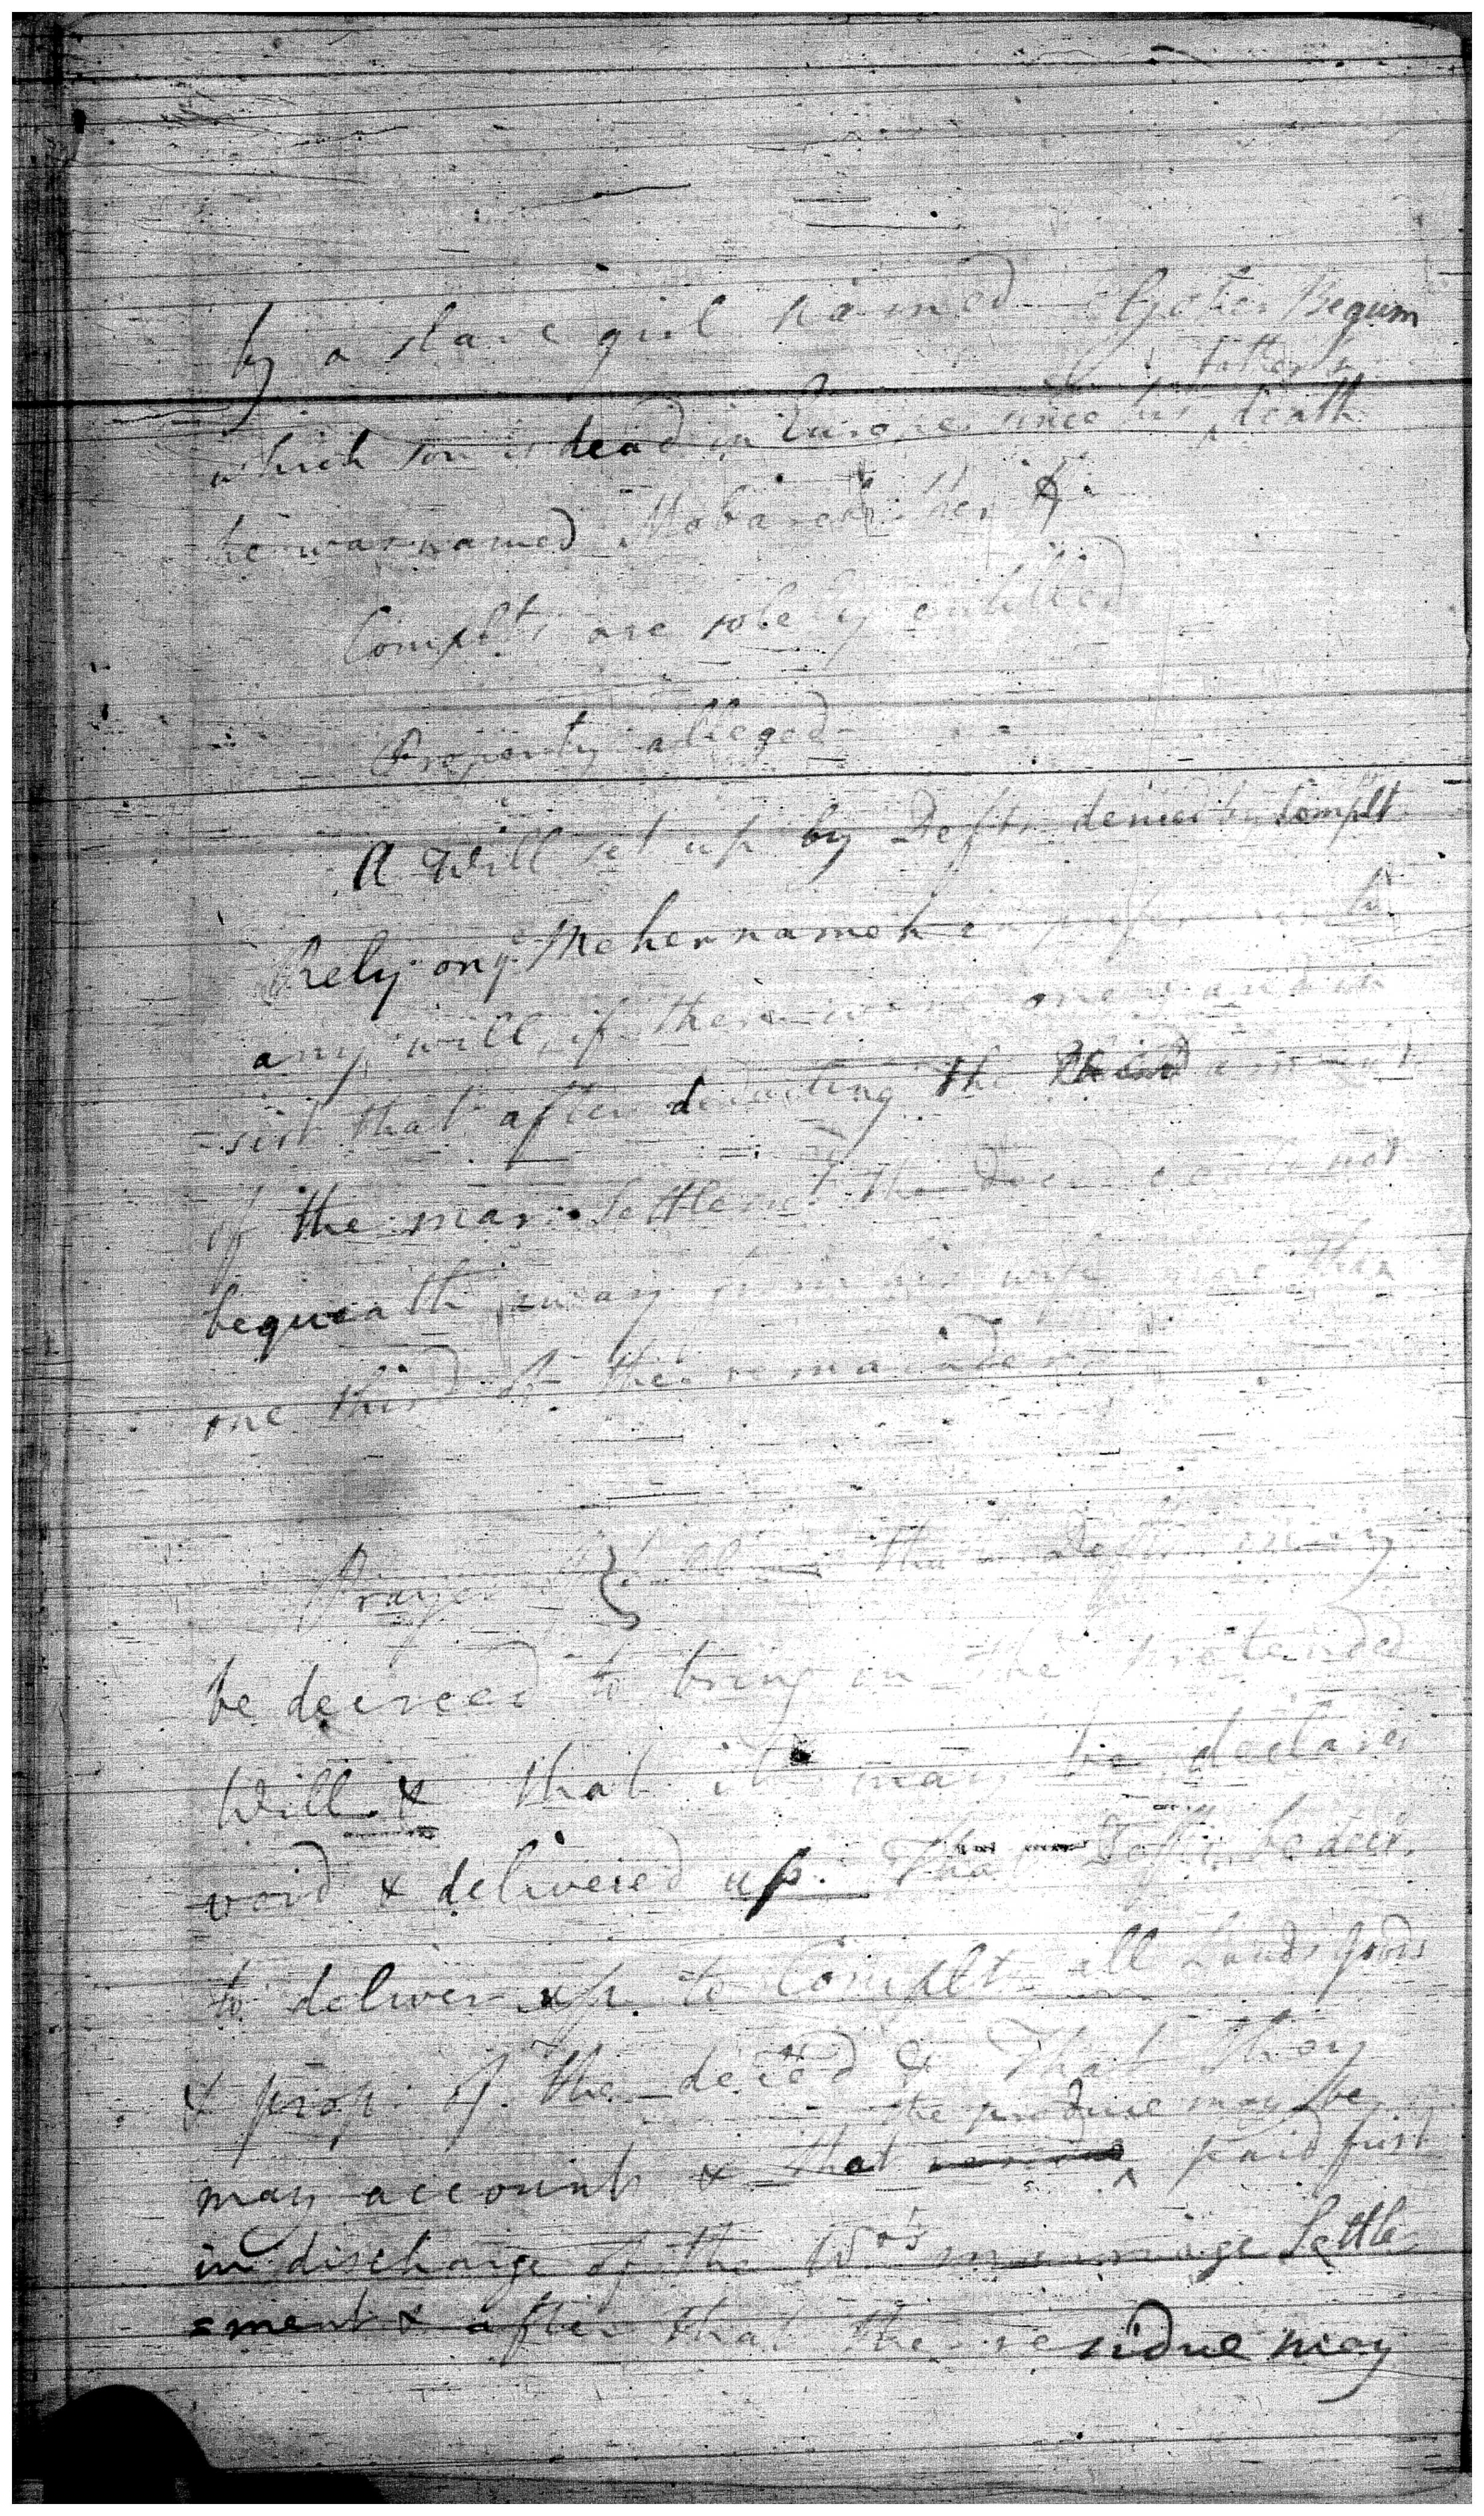 by a slave girl named Begum
which son is dead in Europe since his father's death
he was named
Complts are solely entitled
Property alleged
A Will set up by Defts denied by Complt
Rely on ye Mehernameh in preference to
any will if there were one and in
-sist that after deducting the amount
of the mar: Settlemt the Deced could not
bequeath away from his wife more than
one third of the remainder
Prayer } That the Defts may
be decreed to bring in the pretended
Will & that it may be declared
void & delivered up. That Defts be decr.
to deliver up to Complts all Lands goods
& prop: of the deced & That they
may account & that the produce may be paid first
in discharge of the marriage Settle
=ment & after that the residue may